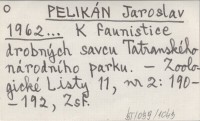 O PELIKÁN Jaroslav
1962... K faunistice
drobných savcu Tatranského
národního parku. – Zoolo-
gické Listy 11, nr 2: 190-
-192, Zsf.